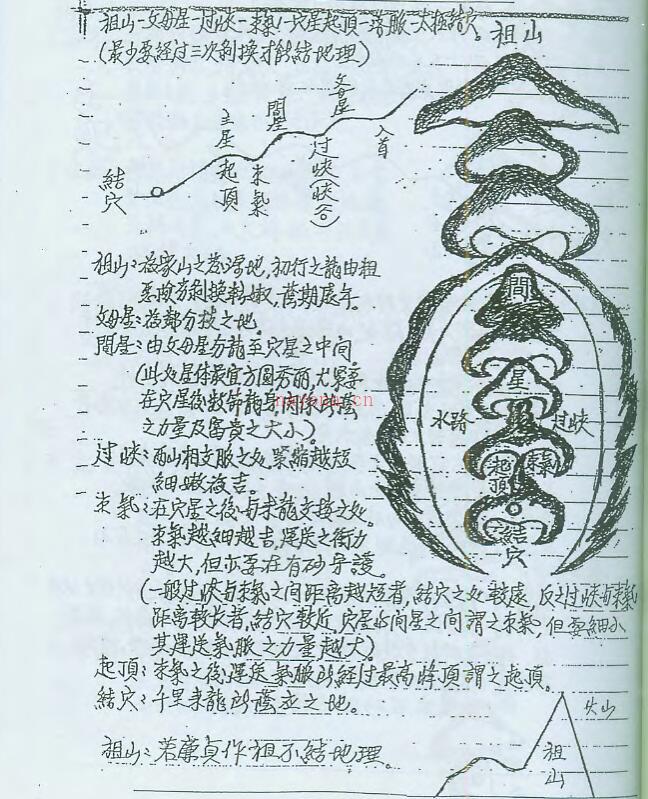 祖山–父母星–过峡–束氣–穴星起頂–落脈–太極結穴。
(最少要經过三次剝換才能結地理)
祖山
父母星
間星
主星
入首
过峡(峡合)
束氣
起頂
結穴
間
星
水路
过峡
束氣
起頂
結穴
祖山:為家山之發源地,初行之龍由粗
父母星:為部分技之地。
間星:由父母星分龍至穴星之中间。
(此处星体最宜方圆秀丽,尤其
在穴星後數節龍
之力量及富貴之大小)
过峡:两山相交脈之处,緊縮越短
細嫩為吉。
束氣:在穴星之後与来龍交接之处。
束氣越細越吉,運送之衝力
越大,但亦要在有砂守護。
(一般过峡与束氣之间距离越短者,結穴之处較遠,反之过峡与束氣
距离較长者,結穴較近,穴星与间星之间謂之束氣,但要細小
其運送氣脈之力量越大)
起頂:束氣之後,運送氣脈所經过最高峰頂謂之起頂。
結穴:千里来龍所蔭立之地。
祖山:若廉貞作祖不結地理。
火山
祖山